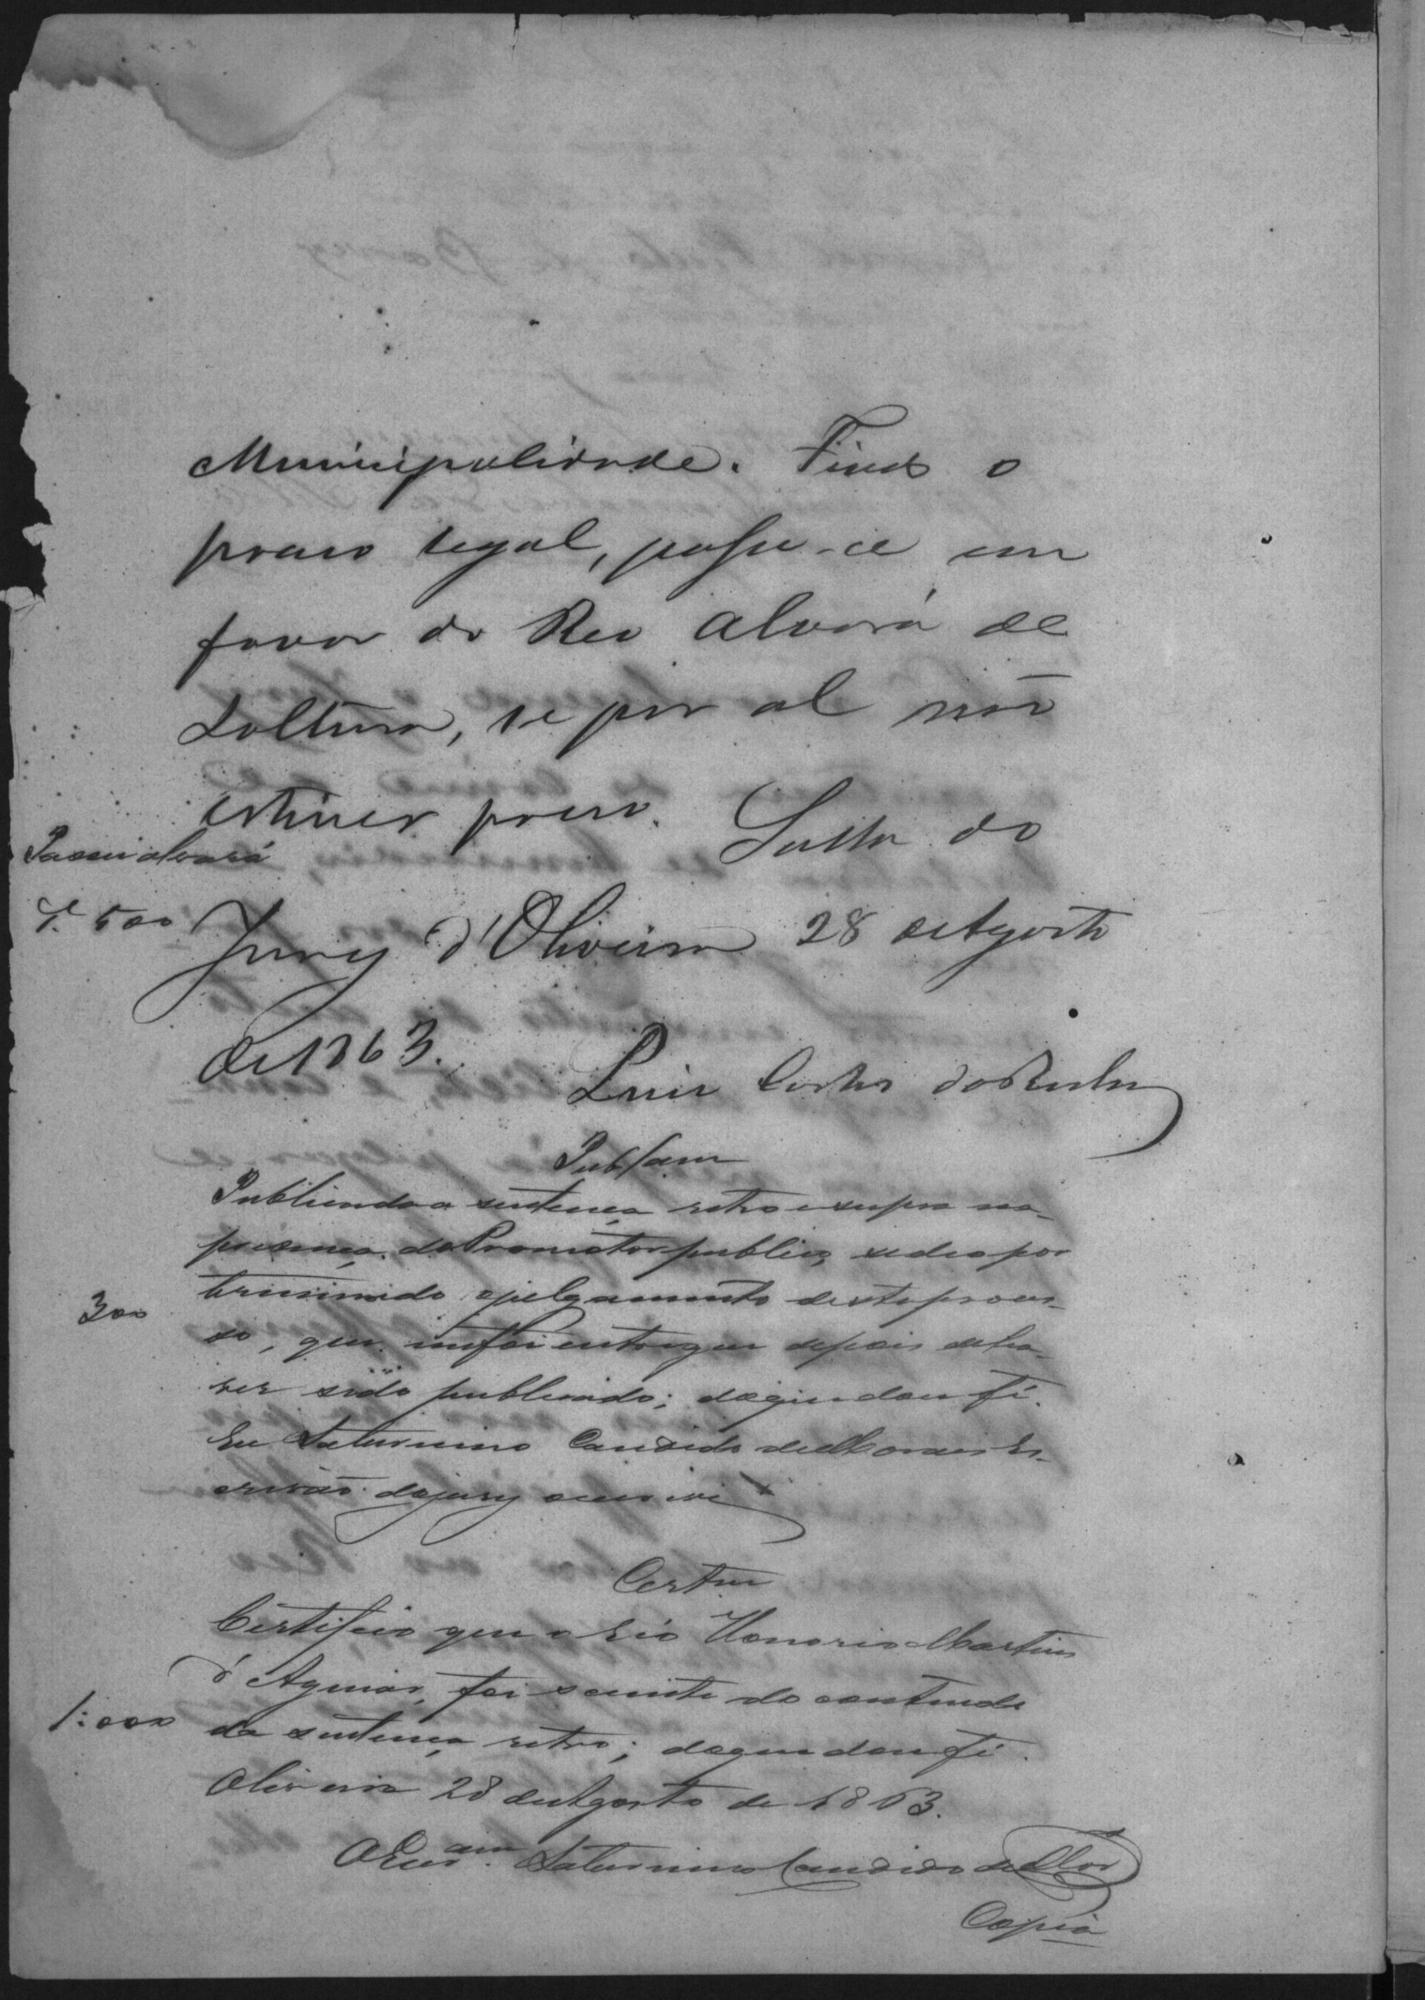 Municipalidade. Findo o
praso legal, passe-se em
favor do Reo Alvará de
Soltura, se por al não
estiver preso. Salla do
Passei alvará
Jury d'Oliveira 28 de Agosto
de 1863.
Luis Carlos da Rocha
Publ.am
Publicada a sentença retro e supra na
presença do Promotor publico, se deo por
terminado o julgamento deste proces-
so, que me foi entregue depois de ha-
300
ver sido publicado; do que dou fé.
Eu Saturnino Candido de Moraes Es-
crivão do jury o escrevi
Certam
Certifico que o réo Honorio Martins
d'Aguiar, foi sciente do contendo
1:000
da sentença retro; do que dou fé.
Oliveira 28 de Agosto de 1863.
O Escr.am Saturnino Candido de Mor
Copia